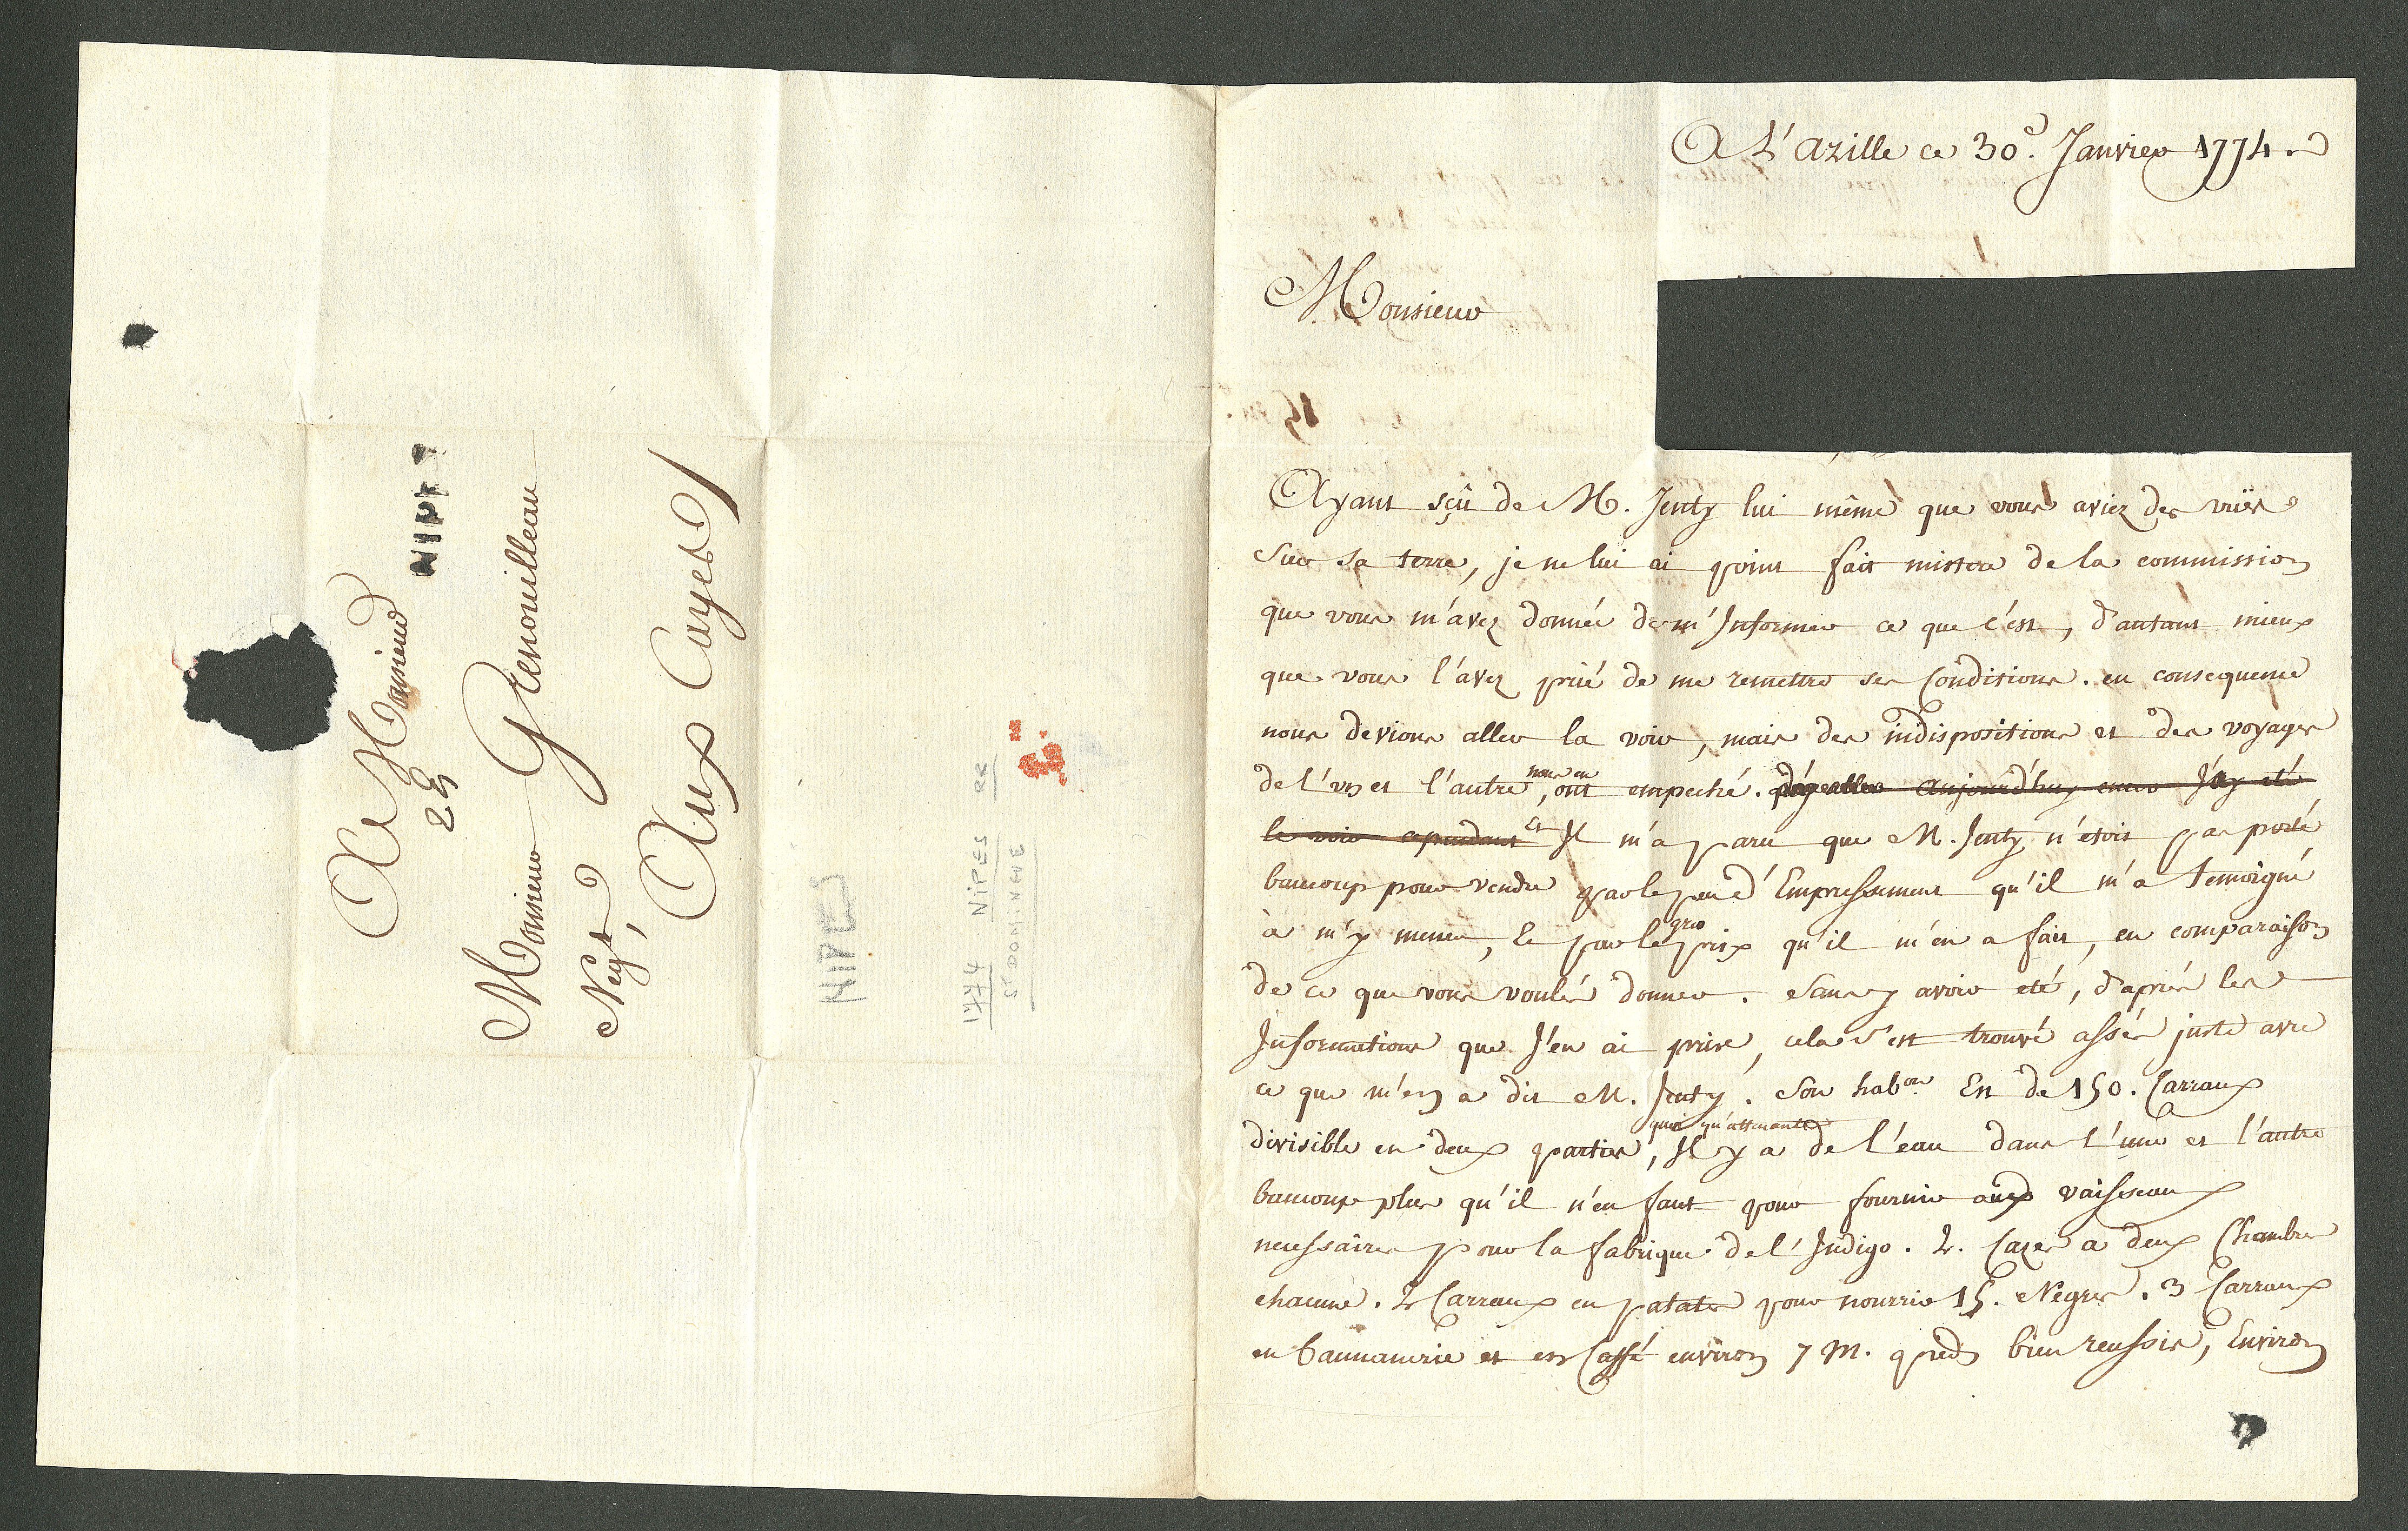 A Monsieur
NIPPES
29
Monsieur Grenouilleau
Negt,
Aux Cayes
NIPES
1774 NIPES RR
ST DOMINGUE
A L'Azille ce 30e. Janvier 1774.
Monsieur
Ayant sçû de M. Jenty lui même que vous aviez des vuës
Sur sa terre, je ne lui ai point fait mistere de la commission
que vous m'avez donnée de m'Informer ce que c'est, d'autant mieux
que vous l'avez prié de me remettre ses Conditions. en consequence
nous devions aller la voir, mais des indispositions et des voyages
de l'un et l'autre, nous en ont empeché. d'y aller aujourd'huy J'ay eté
le voir cependant Et Il m'a paru que M. Jenty n'etoit pas porté
baucoup pour vendre par le peu d'Empressement qu'il m'a temoigné
à m'y mener, & par le gros prix qu'il m'en a fait, en comparaison
de ce que vous voulés donner. Sans y avoir eté, d'aprés les
Informations que J'en ai prise, cela s'est trouvé assés juste avec
ce que m'en a dit M. Jenty. Son habon. Est de 150. Carraux
divisible en deux parties, quoi qu'attenante Il y a de l'eau dans l'une et l'autre
baucoup plus qu'il n'en faut pour fournir aux vaisseaux
necessaires pour la fabrique de l'Indigo. 2. Cazes a deux Chambres
chacune. 2 Carraux en patates pour nourrir 15. Négres. 3 Carraux
en bannanerie et en Caffé environ 7 M. pieds bien reussis, Environ